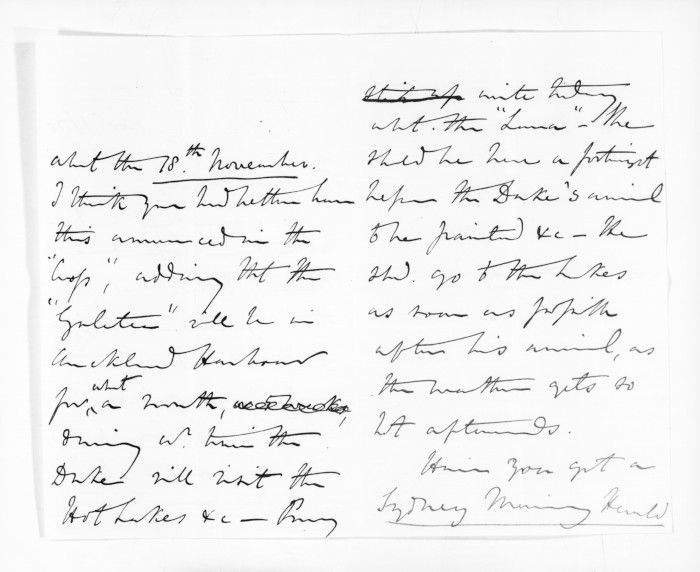 abt the 18.th November.
I think you had better have
this announced in the
"Crop", adding tht the
"Galatea" will be in
Auckland Harbour
for abt a month,
during wh. time the
Duke will visit the
Hot Lakes &c — Pray
write
abt. the "Luna" — She
shd be here a fortnight
before the Duke's arrival
to be painted &c — He
shd. go to the Lakes
as soon as possible
after his arrival, as
the weather gets so
hot afterwards.
Have you got a
Sydney Morning Herald